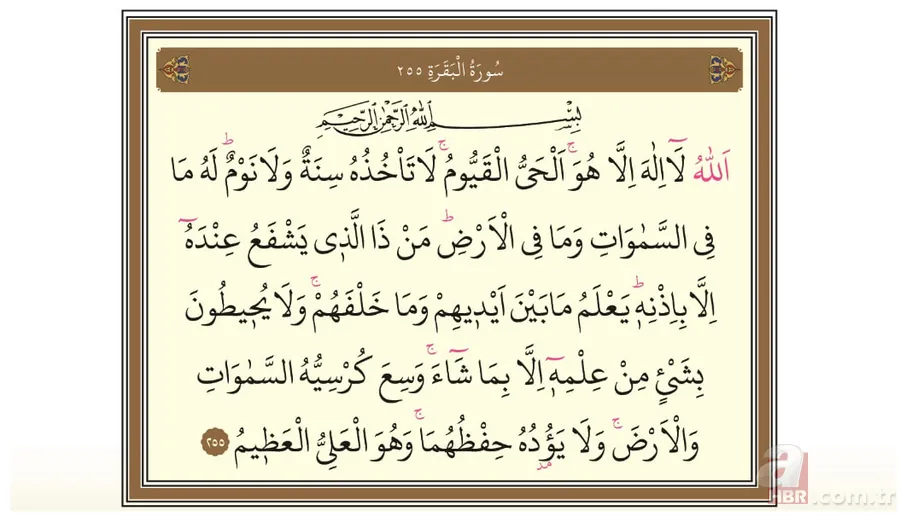 سُورَةُ الْبَقَرَةِ ٢٥٥
بِسْمِ اللّٰهِ الرَّحْمٰنِ الرَّحِيمِ
اَللّٰهُ لَٓا اِلٰهَ اِلَّا هُوَۚ اَلْحَيُّ الْقَيُّومُۚ لَا تَأْخُذُهُ سِنَةٌ وَلَا نَوْمٌۜ لَهُ مَا
فِي السَّمٰوَاتِ وَمَا فِي الْاَرْضِۜ مَنْ ذَا الَّذ۪ي يَشْفَعُ عِنْدَهُٓ
اِلَّا بِاِذْنِه۪ۜ يَعْلَمُ مَا بَيْنَ اَيْد۪يهِمْ وَمَا خَلْفَهُمْۚ وَلَا يُح۪يطُونَ
بِشَيْءٍ مِنْ عِلْمِه۪ٓ اِلَّا بِمَا شَٓاءَۚ وَسِعَ كُرْسِيُّهُ السَّمٰوَاتِ
وَالْاَرْضَۚ وَلَا يَؤُ۫دُهُ حِفْظُهُمَاۚ وَهُوَ الْعَلِيُّ الْعَظ۪يمُ ٢٥٥
a
HBR.com.tr